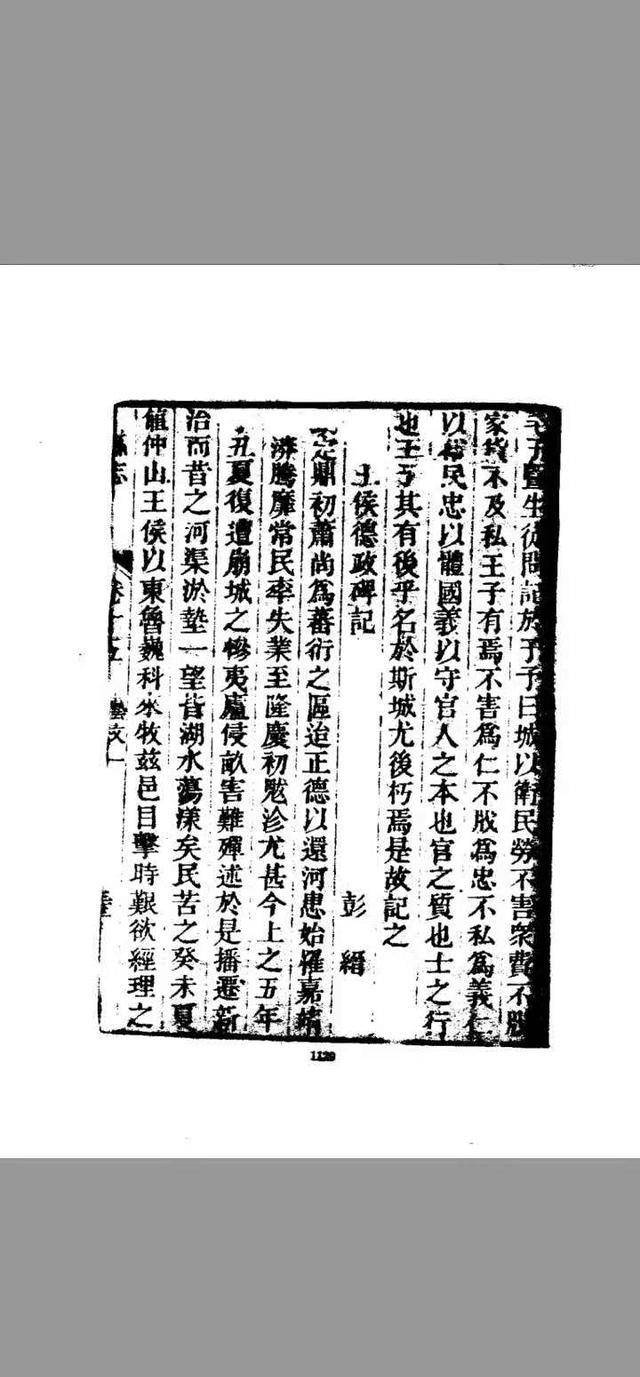 生徒問記於予予曰城以衛民勞不害衆費不股
家貨不及私王子有焉不害為仁不股為忠不私為義仁
以裕民忠以體國義以守官人之本也官之質也士之行
也王子其有後乎名於斯城尤後朽焉是故記之
王侯德政碑記
彭縉
鼎初蕭尚為蕃衍之區迨正德以還河患始罹嘉靖
漭騰靡常民率失業至隆慶初戾沴尤甚今上之五年
丑夏復遭崩城之慘夷廬侵畝害難殫述於是播遷新
治而昔之河渠淤墊一望皆湖水蕩漾矣民苦之癸未夏
仲山王侯以東魯巍科來牧茲邑目擊時艱欲經理之
志
卷十五
藝文一
1129